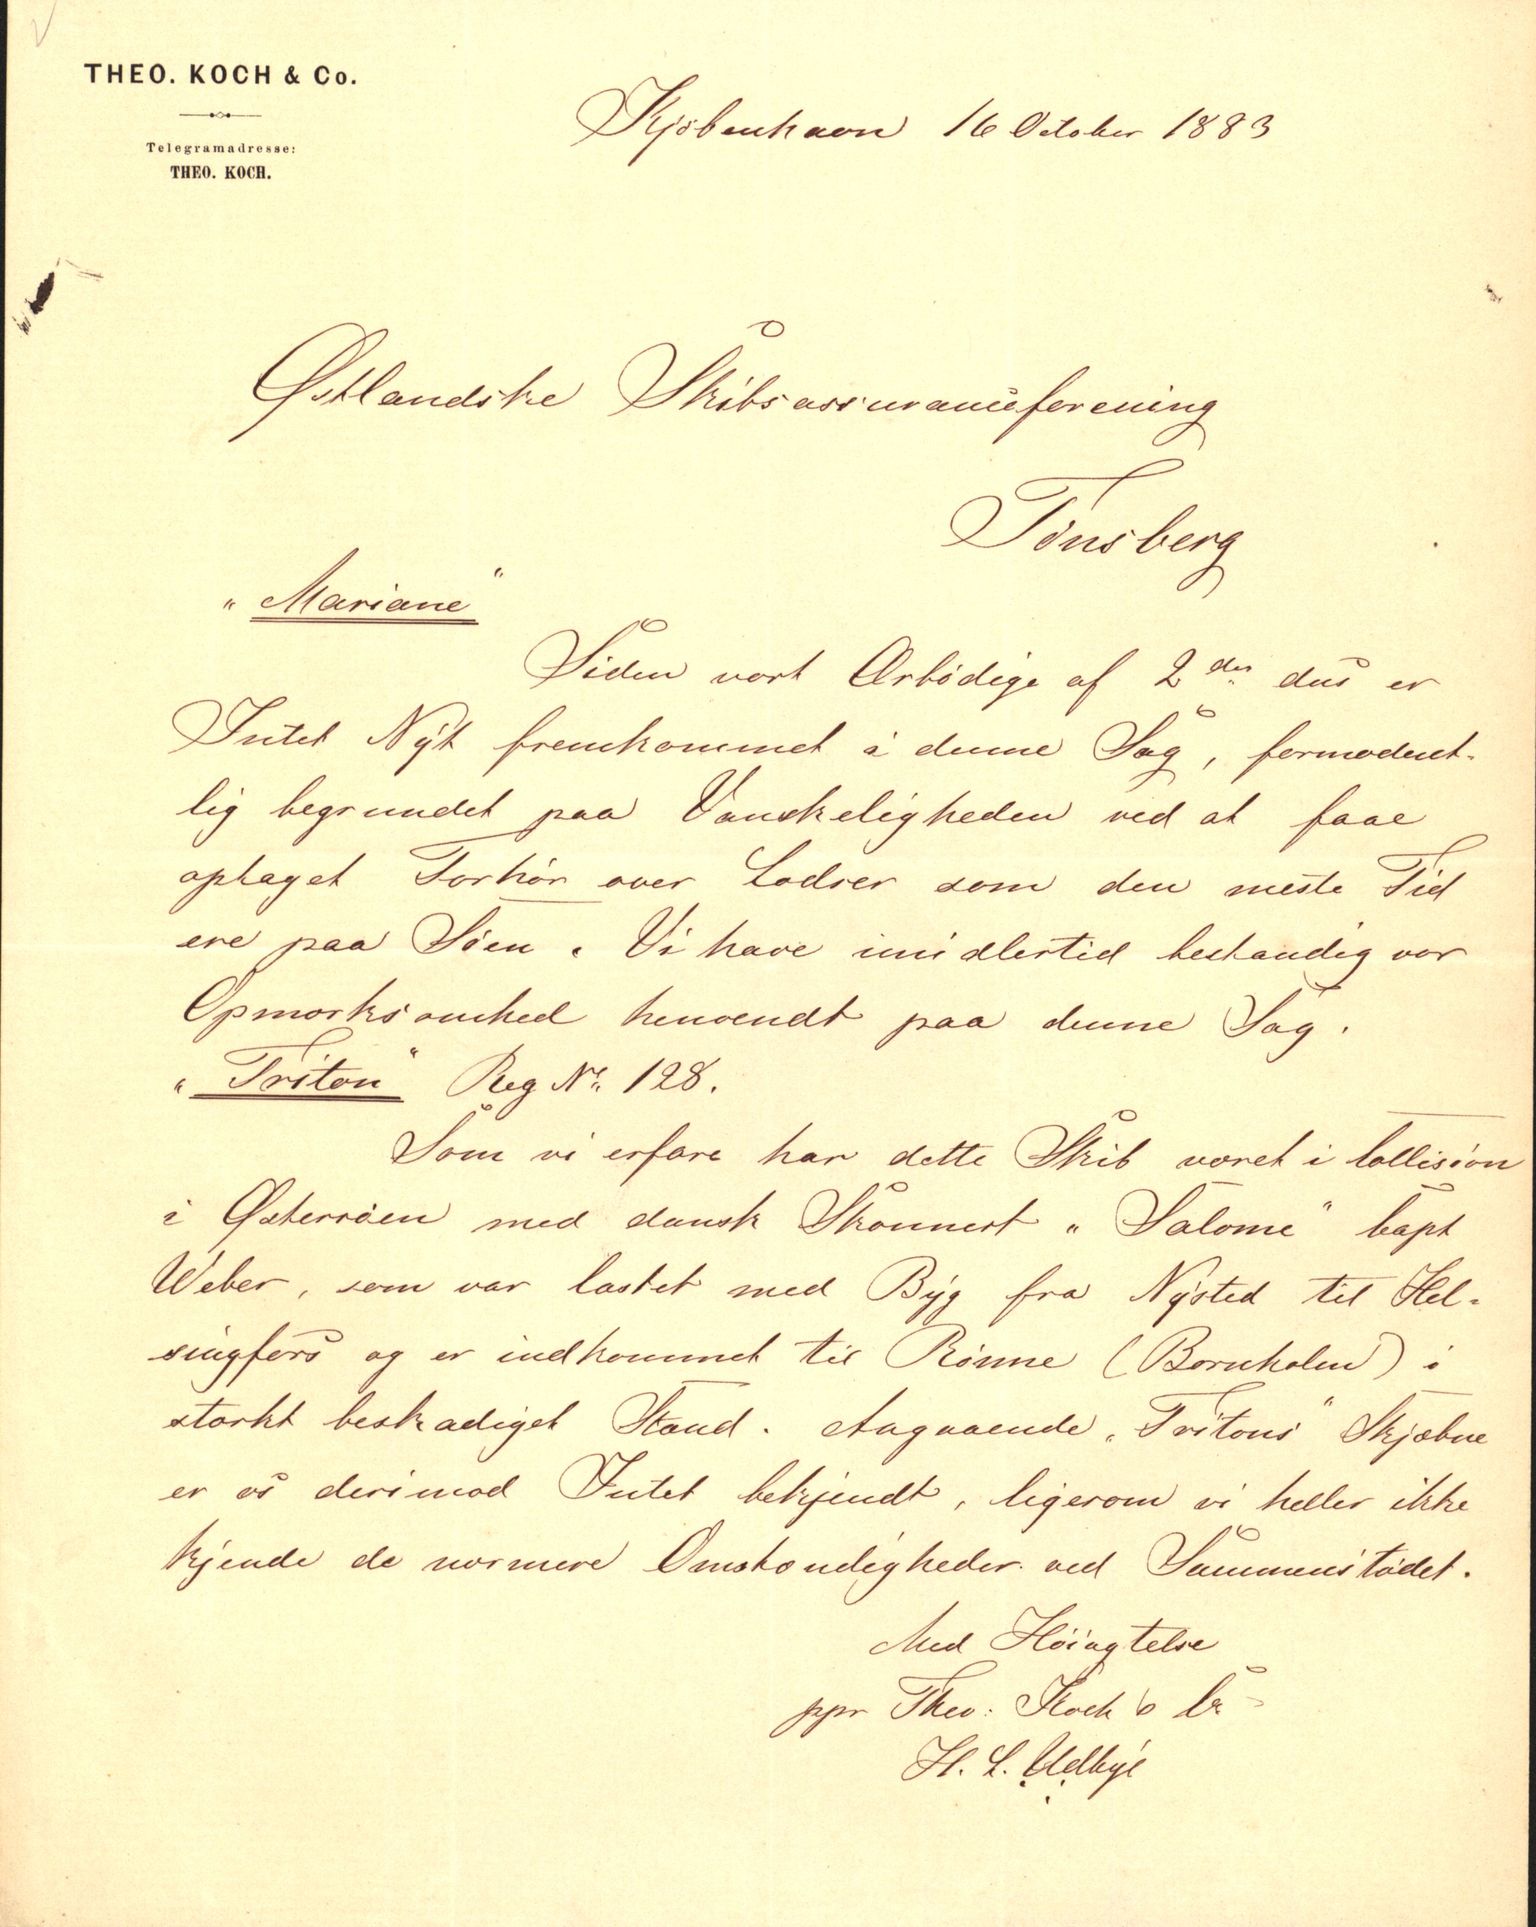 THEO. KOCH & Co.
Telegramadresse:
THEO. KOCH.
Kjøbenhavn 16 October 1883
Østlandske Skibsassuranceforening
Tønsberg
"Mariane"
Siden vort Ærbødige af 2den ds er
Intet Nyt fremkommet i denne Sag, formodent-
lig begrundet paa Vanskeligheden ved at faae
optaget Forhør over Lodser som den meste Tid
ere paa Søen. Vi have imidlertid bestandig vor
Opmærksomhed henvendt paa denne Sag.
"Triton" Reg No. 128.
Som vi erfare har dette Skib været i Collision
i Østersøen med dansk Skonnert "Salome" Capt
Weber, som var lastet med Byg fra Nysted til Hel-
singfors og er indkommet til Rønne (Bornholm) i
stærkt beskadiget Stand. Angaaende "Tritons" Skjæbne
er os derimod Intet bekjendt, ligesom vi heller ikke
kjende de nærmere Omstændigheder ved Sammenstødet.
Med Høiagtelse
ppr Theo. Koch & Co
H. L.